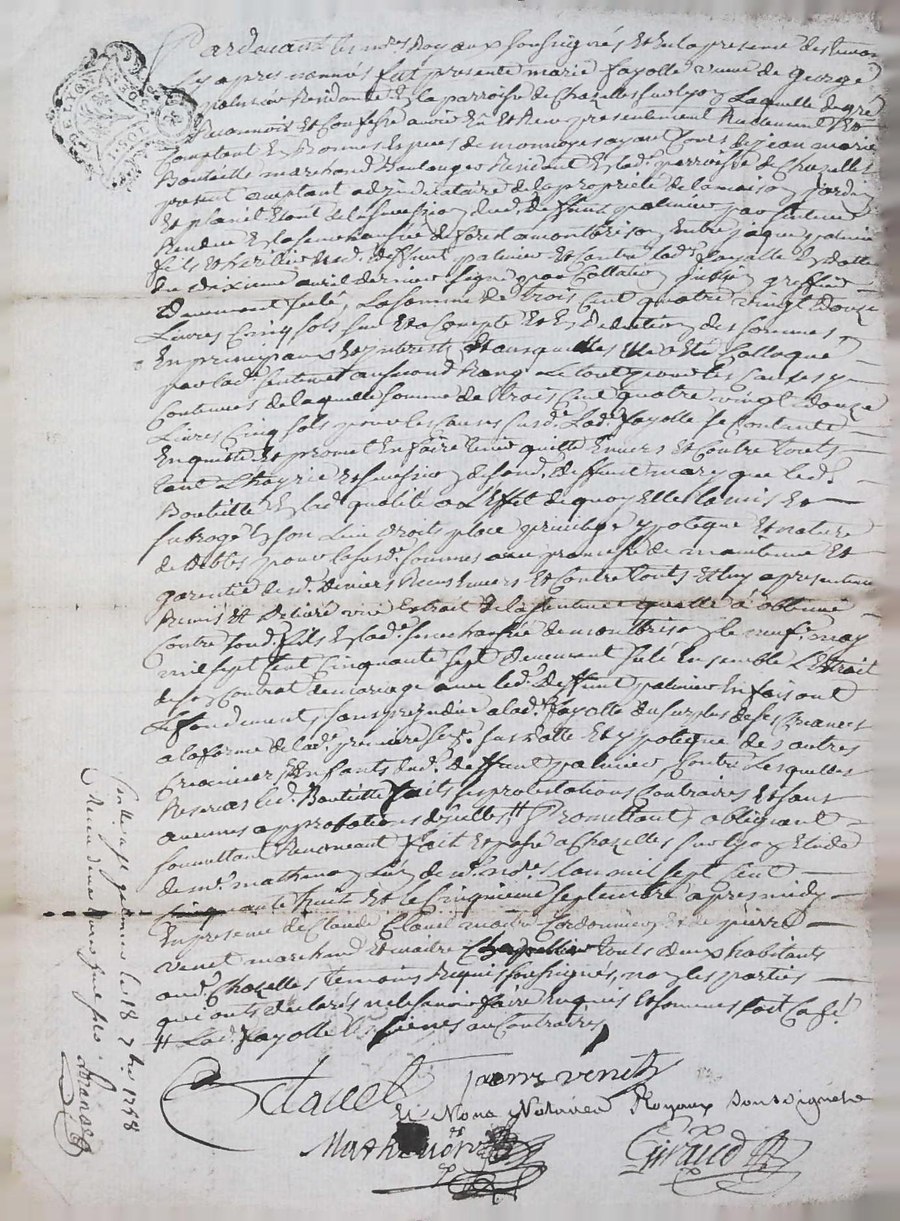 Pardevant les nres Royaux soussignés Et En la presence des temoins
cy apres nommés fut presente marie fayolle veuve de george
palmier Residante En la parroisse de Chazelles sur lyon Laquelle de gré
Reconnoit Et Confesse avoir Eu Et Reçu presentement Reellement Et
Comptant En Bonnes Especes de monnoyes ayant Cours de jean marie
Bouteille marchand Boulanger Résidant En lad. parroisse de Chazelles
present acceptant adjudicataire de la propriété de la maison jardin
Et plasit Etant de la succession dud. deffunt palmier par sentence
Rendue En la senechaussée de forest a montbrison Entre jaques palmier
fils Et heritier dud. deffunt palmier Et Contre lad. fayolle En datte
du dixieme avril dernier signé par Collation greffier
Deuement scelé La somme de trois Cent quatre vingt douze
Livres Cinq sols sur Et a Compte Et En Deduction des sommes
En principaux Et interets Et ausquelles Elle a Eté Colloquée
par lad. sentence au second Rang Le tout pour les Causes y
Contenues de laquelle somme de trois Cent quatre vingt douze
Livres Cinq sols pour les Causes susd. Lad. fayolle se Contente
En quitte Et promet En faire tenir quitte Envers Et Contre touts
tant L'hoyrie Et succession de sond. deffunt mary que led.
Bouteille En lad. qualité a L'Effet de quoy Elle la mis Et
subrogé En son Lieu droits place privilege ypoteque Et nature
de debtes pour lesusd. sommes avec promesse de maintenue Et
garentie desd. deniers Recus Envers Et Contre touts Et luy a presentement
Remis Et delivré une Extrait de la sentence quelle a obtenue
Contre sond. fils En lad. senechaussée de montbrison le neuf may
mil sept cent Cinquante sept deuement scelé Ensemble L'Extrait
de son Contrat de mariage avec led. deffunt palmier En faisant
Le fondement, sans prejudice a lad. fayolle du surplus de ses Creances
a la forme de lad. premiere sen. sus datte Et ypoteque des autres
Creanciers Enfants dud. deffunt palmier, Contre Lesquelles
Reserves led. Bouteille fait ses protestations Contraires Et sans
aucunes approbations d'icelles # Promettant, obligeant
soumettant Renoncant fait Et passé a Chazelles sur lyon Etude
de me mathevon L'un de nosd. nores L'an mil sept Cent
Cinquante huit Et le Cinquieme septembre apres midy
En presence de Claude Clavel maitre Cordonnier Et de pierre
venet marchand Et maitre Chapellier touts deux habitants
aud. Chazelles temoins Requis soussignés, non les parties
qui ont declarés ne le scavoir faire Enquis Et sommés fait Ca fé
# Lad. fayolle Les siennes au Contraires
Clavel pierre venet
Et Nous Notaires Royaux Soussignes
Mathevon Giraud
Con.lle a st galmier le 18 7bre 1758
Recu douze sols